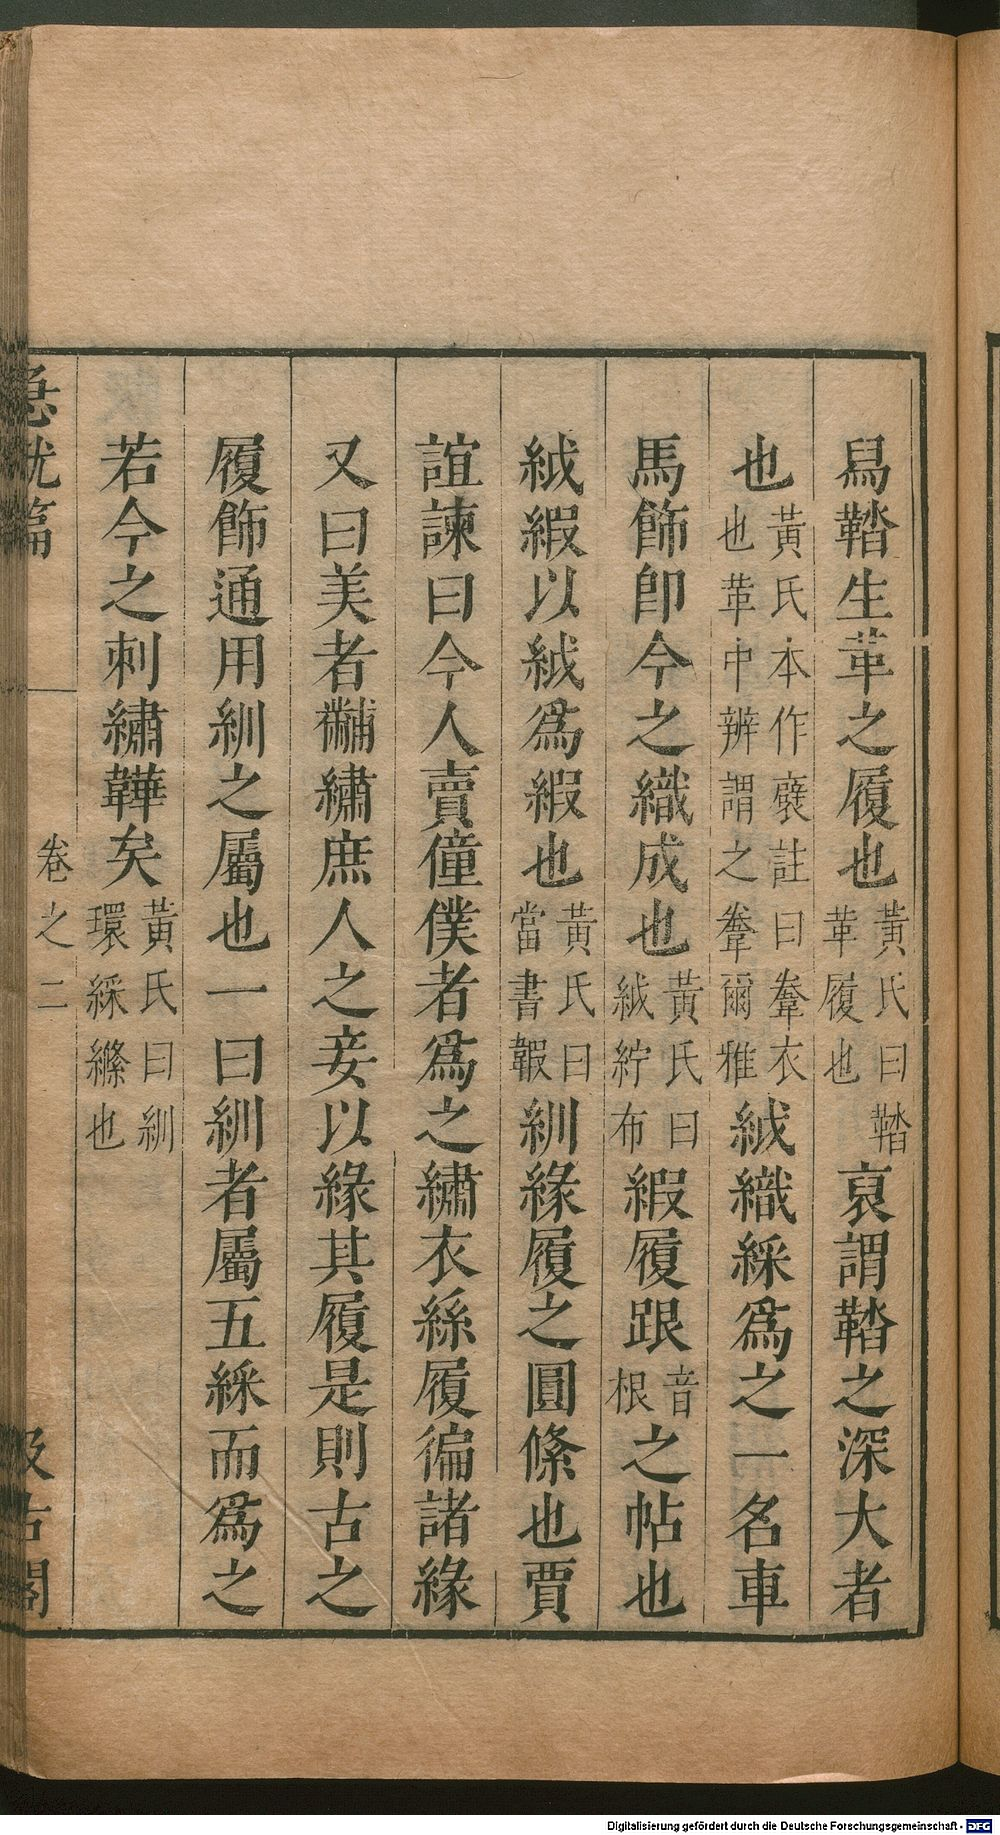 舄鞜生革之履也黃氏曰鞜革履也裒謂鞜之深大者
也黃氏本作褎註曰韏衣也革中辨謂之韏爾雅絨織綵爲之一名車
馬飾卽今之織成也黃氏曰絨紵布緞履跟音根之帖也
絨緞以絨爲緞也黃氏曰當書鍜紃緣履之圓絛也賈
誼諫曰今人賣僮僕者爲之繡衣絲履徧諸緣
又曰美者黼繡庶人之妾以緣其履是則古之
履飾通用紃之屬也一曰紃者屬五綵而爲之
若今之刺繡鞾矣黃氏曰紃環綵絛也
急就篇 卷之二 汲古閣
Digitalisierung gefördert durch die Deutsche Forschungsgemeinschaft - DFG